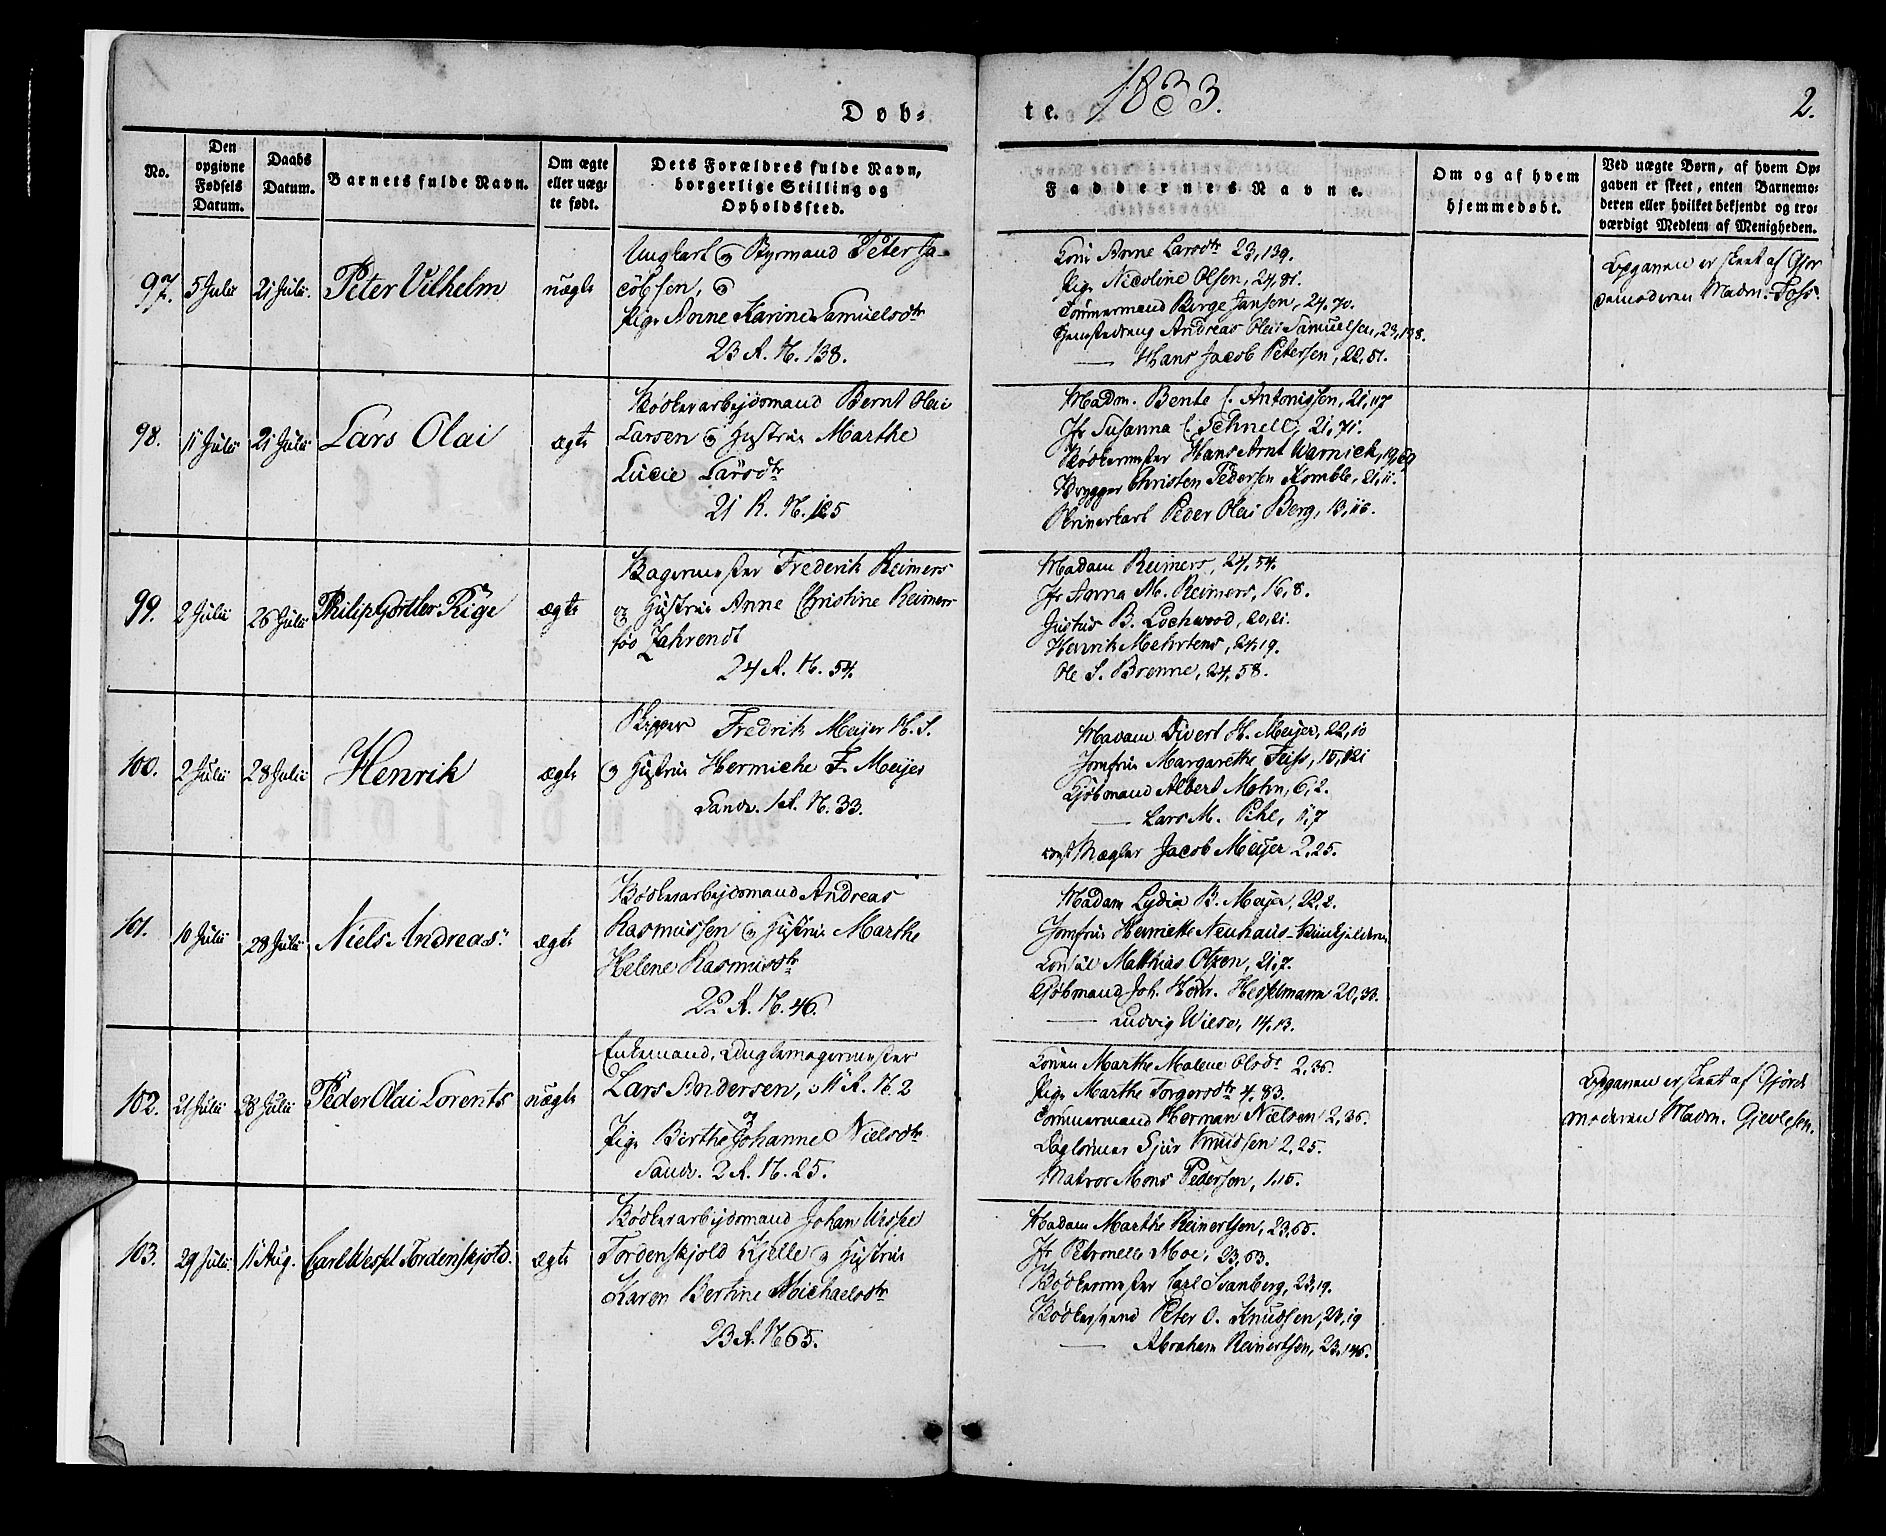 Døb=
te.
1833.
2.
No.
Den
opgivne
Fødsels
Datum.
Daabs
Datum.
Barnets fulde Navn.
Om ægte
eller uæg=
te født.
Dets Forældres fulde Navn,
borgerlige Stilling og
Opholdssted.
Faddernes Navne.
Om og af hvem
hjemmedøbt.
Ved uægte Børn, af hvem Op=
gaven er skeet, enten Barnemo=
deren eller hvilket bekjendt og tro=
værdigt Medlem af Menigheden.
97.
5 Julii
21 Julii.
Peter Vilhelm
uægte
Ungkarl og Styrmand Peter Ja-
cobsen, og
Pige Anne Karine Samuelsdtr
23 R. N. 138.
Kone Anne Larsdtr 23, 139.
Pige Nicoline Olsen, 24, 81.
Tømmermand Børge Jansen, 24, 70.
Andreas Olai Samuelsen, 23, 138.
— Hans Jacob Petersen, 22, 51.
Opgaven er skeet af Gjor
demoderen Madm. Foss.
98.
11 Julii
21 Julii
Lars Olai
ægte
Bødkerarbejdsmand Bernt Olai
Larsen og Hustrue Marthe
Lucie Larsdtr
21 R. N. 125
Madm. Bente C. Antonissen, 21, 117
Jfr Susanna C. Schnell, 21, 71.
Bødkermester Hans Arnt Warnick, 19, 69
Brygger Christen Pedersen Komble, 21, 11.
Peder Olai Berg, 13, 116.
99.
2 Julii
26 Julii
Philip Görtler Rige
ægte
Bagermester Frederik Reimers
og Hustrue Anne Christine Reimers
fød Zahrendt
24 R. N. 54.
Madam Reimers, 24, 54.
Jfr Anna M. Reimers, 16, 8.
Justus B. Lochwood, 20, 21.
Henrik Mehrtens, 24, 19.
Ole S. Brenne, 24, 58.
100.
2 Julii
28 Julii
Henrik
ægte
Skipper Fredrik Meijer H. S.
og Hustrue Hermiche F. Meijer
Sandv. 1 R. N. 33.
Madam Divert H. Meijer, 22, 10
Jomfrue Margarethe Feiss, 15, 121
Kjøbmand Albert Mohn, 6, 2.
— Lars M. Pihl, 11, 7
const Mægler Jacob Meijer 2, 25.
101.
10 Julii
28 Julii
Niels Andreas
ægte
Bødkerarbejdsmand Andreas
Rasmussen og Hustrue Marthe
Helene Rasmusdtr
22 R. N. 46.
Madam Lydia B. Meijer, 22, 2.
Jomfrue Henriette Neuhaus
Consul Matthias Otzen, 21, 7.
Kjøbmand Joh. Henr. Hesselmann 20, 33.
— Ludvig Wiese, 14, 13.
102.
21 Julii
28 Julii
Peder Olai Lorents
uægte
Enkemand, Duglemagermester
Lars Andersen, 11 R. N. 2
og
Pige Birthe Johanne Nielsdtr
Sandv. 2 R. N. 25.
Konen Marthe Malene Olsdt 2, 36.
Pige Marthe Torgersdtr 4, 83.
Tømmermand Herman Nielsen 2, 36.
Daglønner Sjur Knudsen 2, 25.
Matros Mons Pedersen, 1, 15.
Opgaven er skeet af Gjorde
moderen Madm. Gjevlesen.
103.
29 Julii.
11 Aug.
Carl Wessel Tordenskjold.
ægte
Bødkerarbejdsmand Johan Wessel
Tordenskjold Kjelle og Hustrue
Karen Bertine Michaelsdtr
23 R. N. 65.
Madam Marthe Reinertsen, 23, 65.
Jfr Petronelle Moe, 23, 63.
Bødkermester Carl Svanberg, 23, 19.
Bødkersvend Peter O. Knudsen, 23, 19
— Abraham Reinertsen, 23, 146.